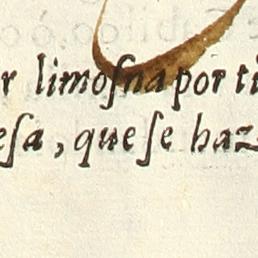 r limoſna por ti
eſa, que ſe haz